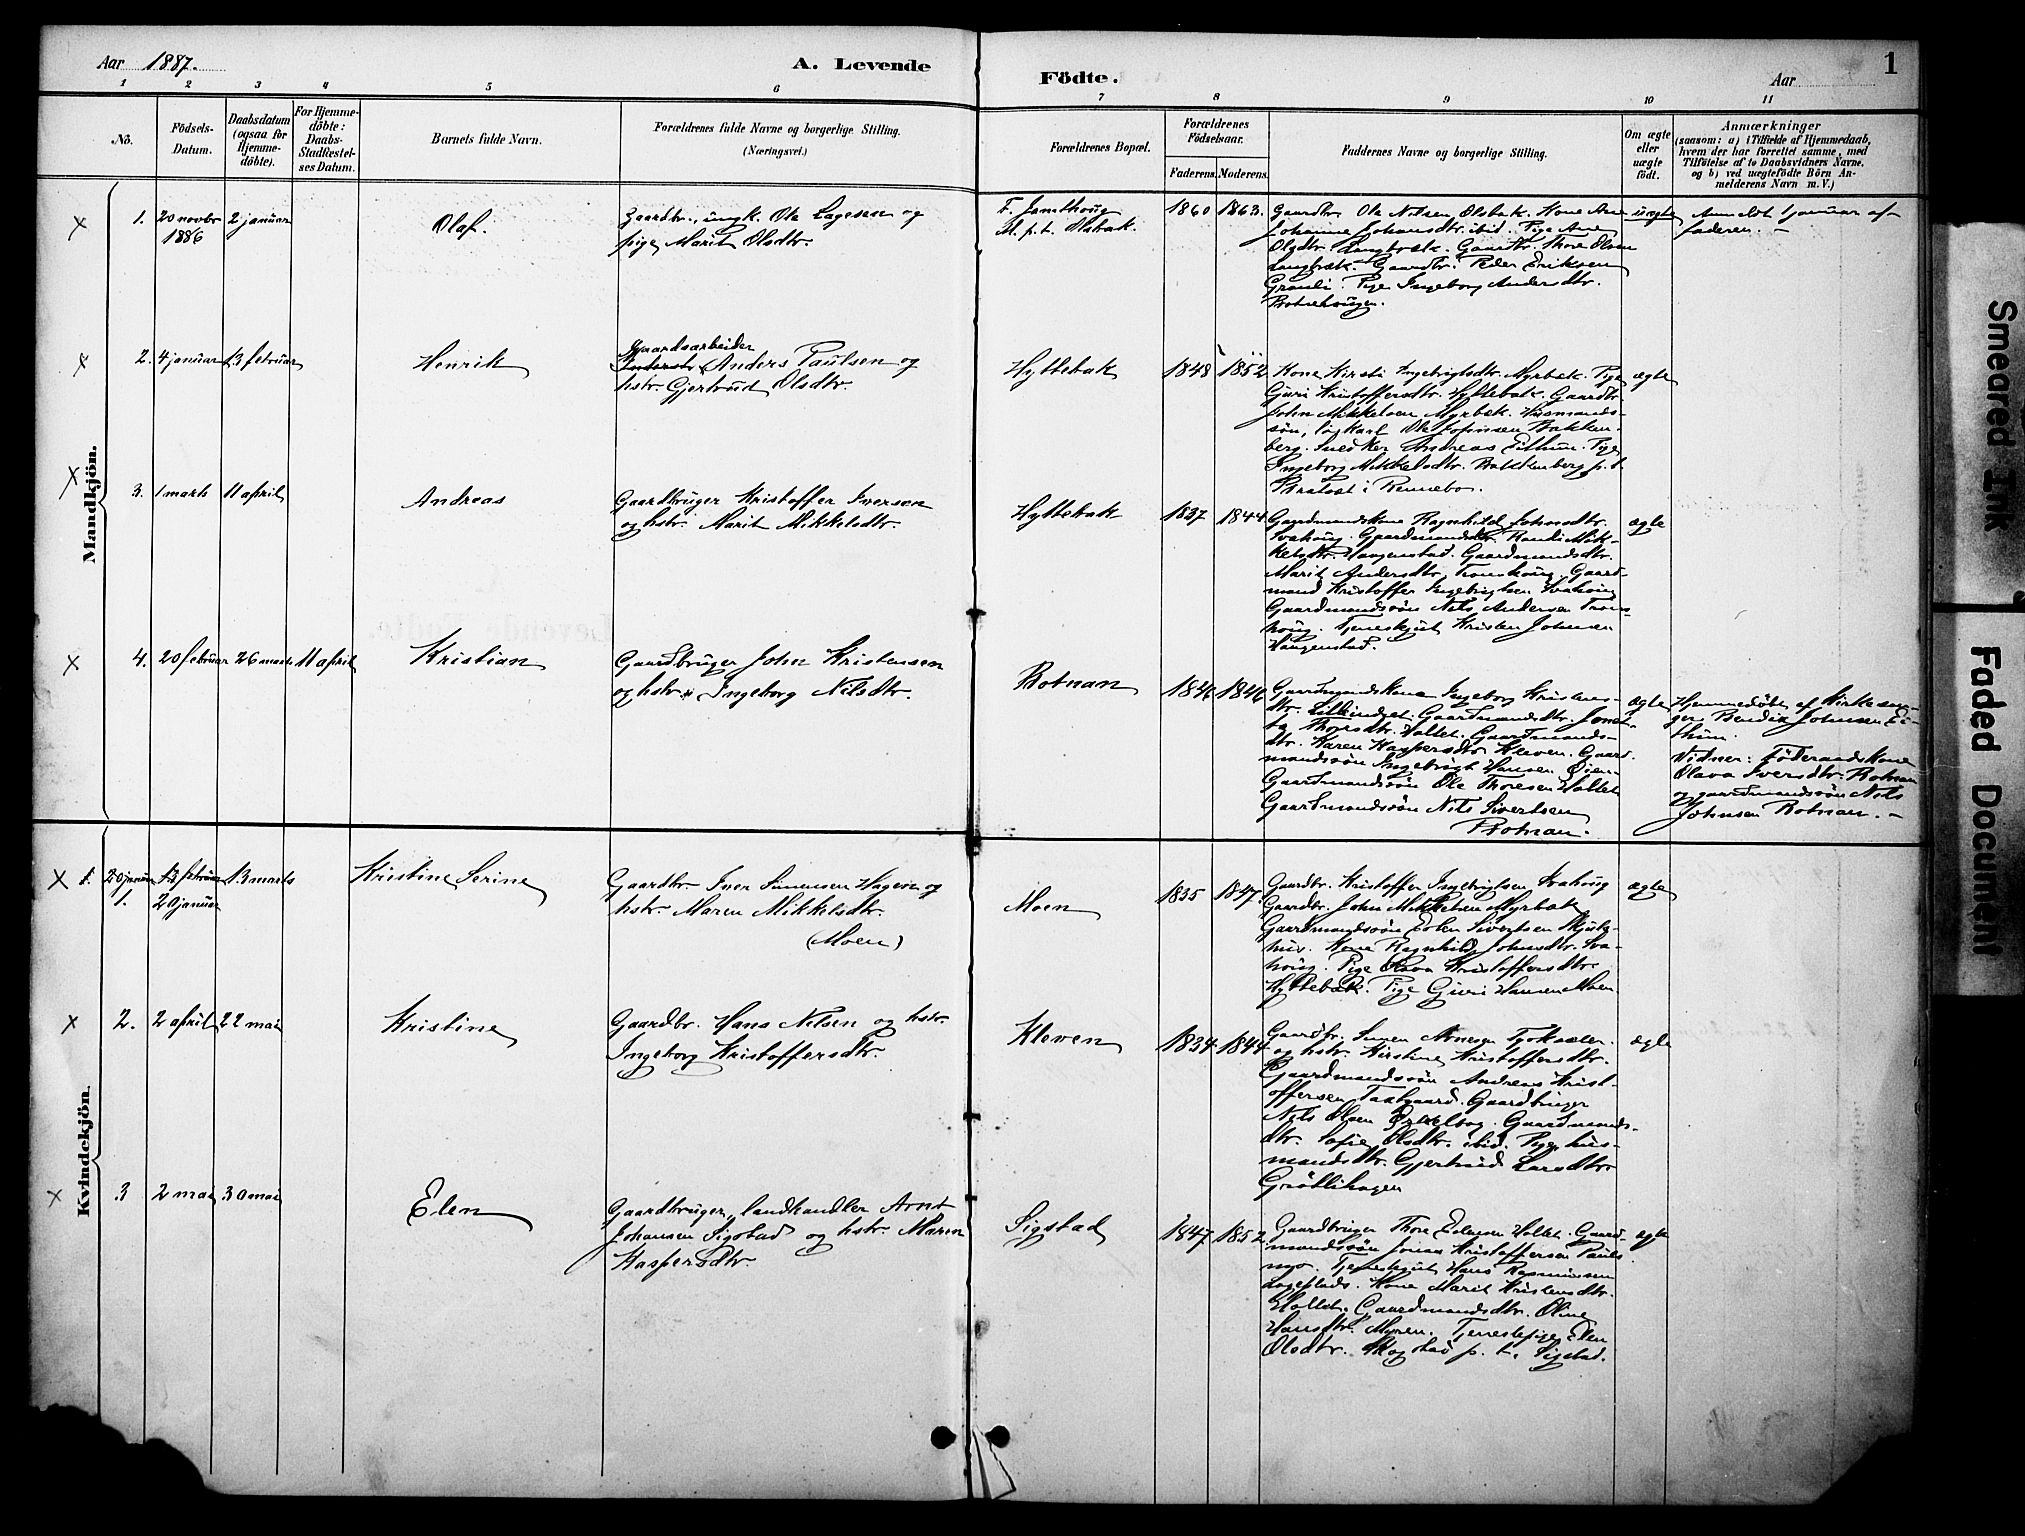 Aar 1887.
A. Levende
Födte.
Aar
1
1 2 3 4 5 6 7 8 9 10 11
No.
Födsels-
Datum.
Daabsdatum
(ogsaa for
Hjemme-
döbte).
For Hjemme-
döbte:
Daabs-
Stadfæstel-
ses Datum.
Barnets fulde Navn.
Forældrenes fulde Navne og borgerlige Stilling.
(Næringsvei.)
Forældrenes Bopæl.
Forældrenes
Födselsaar.
Faderens. Moderens.
Faddernes Navne og borgerlige Stilling.
Om ægte
eller
uægte
födt.
Anmærkninger
(saasom: a) i Tilfælde af Hjemmedaab,
hvem der har forrettet samme, med
Tilföielse af to Daabsvidners Navne,
og b) ved uægtefödte Börn An-
melderens Navn m. V.)
Mandkjön.
1. 20 novbr 2 januar
1886
Olaf.
Gaardbr., ungk. Ole Lagesen og
pige Marit Olsdtr.
F. Jamthoug
M. p.t. Olsbak.
1860 1863.
Gaardbr. Ole Nilsen Olsbak. Kone Ane
Johanne Johansdtr. ibid. Pige Ane
Olsdtr. Langbræk. Gaardbr. Thore Olsen
Langbræk. Gaardbr. Peder Eriksen
Grandi. Pige Ingeborg Andersdtr.
Rotnehaugen.
uægte
Anmeldt 1 januar af
faderen. –
2. 4 januar 13 februar
Henrik
Gaardsarbeider
Anders Paulsen og
hstr. Gjertrud Olsdtr.
Hyttebak
1848 1852
Kone Kirsti Ingebrigtsdtr. Myrbæk. Pige
Guri Kristoffersdtr. Hyttebak. Gaardbr.
John Mikkelsen Myrbæk. Husmands-
søn, løskarl Ole Johnsen Bakken-
berg. Snedker Andreas Eithun. Pige
Ingeborg Mikkelsdtr. Bakkenberg p.t.
i Rennebo.
ægte
3. 1 marts 11 april
Andreas
Gaardbruger Kristoffer Iversen
og hstr. Marit Mikkelsdtr.
Hyttebak
1837 1844
Gaardmandskone Ragnhild Johnsdtr.
Svahoug. Gaardmandsdtr. Randi Mik-
kelsdtr. Haugenstad. Gaardmandsdtr.
Marit Andersdtr. Tronshoug. Gaard-
mand Kristoffer Ingebrigtsen Svahoug
Gaardmandssøn Nils Andersen Trons-
houg. Tjenestegut Kristen Johnsen
Haugenstad.
ægte
4. 20 februar 26 marts 11 april
Kristian
Gaardbruger John Kristensen
og hstr. Ingeborg Nilsdtr.
Rotnan
1846 1846
Gaardmandskone Ingeborg Kristens-
dtr. Gaardmandsdtr.
Thoresdtr. Hollet. Gaardmands-
dtr. Karen Kaspersdtr. Kleven. Gaard-
mandssøn Ingebrigt Hansen Øien.
Gaardmandssøn Ole Thoresen Hollet
Gaardmandssøn Nils Sivertsen
Rotnan.
ægte
Hjemmedøbt af Kirkesan-
ger Bendix Johnsen Ei-
thun.
Vidner: Føderaadskone
Olava Iversdtr. Rotnan
og gaardmandssøn Nils
Johnsen Rotnan. –
Kvindekjön.
1. 20 januar 13 februar 13 marts
1. 20 januar
Kristine Serine
Gaardbr. Iver Simensen Hagen og
hstr. Maren Mikkelsdtr.
(Moen)
Moen
1835 1847.
Gaardbr. Kristoffer Ingebrigtsen Svahoug
Gaardbr. John Mikkelsen Myrbæk
Gaardmandssøn Esten Sivertsen
Kone Ragnhild Johnsdtr. Sva-
houg. Pige Olava Kristoffersdtr.
Hyttebak. Pige Guri Hansen Moen
ægte
2. 2 april 22 mai
Kristine
Gaardbr. Hans Nilsen og hstr.
Ingeborg Kristoffersdtr.
Kleven
1834 1844
Gaardbr. Simen Arnesen
og hstr. Kirstine Kristoffersdtr.
Gaardmandssøn Andreas Krist-
offersen. Gaardbruger
Nils Olsen. Gaardmands-
dtr. Sofie Olsdtr. ibid. Pige, hus-
mandsdtr. Gjertrud Larsdtr.
Grøtlihagen
ægte
3 2 mai 30 mai
Elen
Gaardbruger, landhandler Arnt
Johansen Sigstad og hstr. Maren
Kaspersdtr.
Sigstad
1847 1852
Gaardbruger Thore Estensen Hollet. Gaard-
mandssøn Jonas Kristoffersen Pauls-
mo. Tjenestegut Hans Rasmussen
Lageplads. Kone Marit Kristensdtr.
Hollet. Gaardmandsdtr. Oline
Hansdtr. Myren. Tjenestepige Elen
Olsdtr. Skogstad p.t. Sigstad.
ægte
Smeared Ink
Faded Document